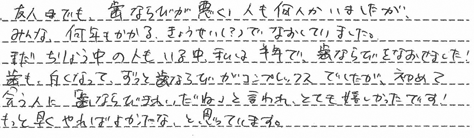 友人はでも、歯ならびが悪く人も何人かいましたが、
みんな、何年もかかる、きょうせい(?)でなおしていました。
まだちりょう中の人もいる中、私は半年で、歯ならびをなおせました！
歯も、白くなって、ずっと歯ならびがコンプレックスでしたが、初めて
会う人に歯ならびきれいだねっと言われ、とても嬉しかったです！
もっと早くやればよかったな、と思っています。